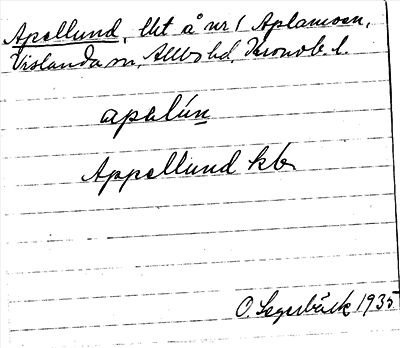 Apellund, lht å nr 1 Aplamoen,
Vislanda sn, Allbo hd, Kronob. l.
apalún
Appellund kb
O. Sagerbäck 1935